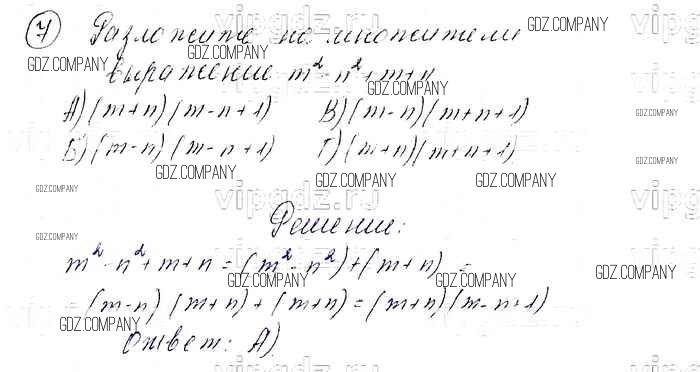 7 Разложите на множители
выражение m² - n² + m + n
А) (m + n) (m - n + 1) В) (m - n) (m + n + 1)
Б) (m - n) (m - n + 1) Г) (m + n) (m + n + 1)
Решение:
m² - n² + m + n = (m² - n²) + (m + n) =
= (m - n) (m + n) + (m + n) = (m + n) (m - n + 1)
Ответ: А)
GDZ.COMPANY
vipgdz.ru